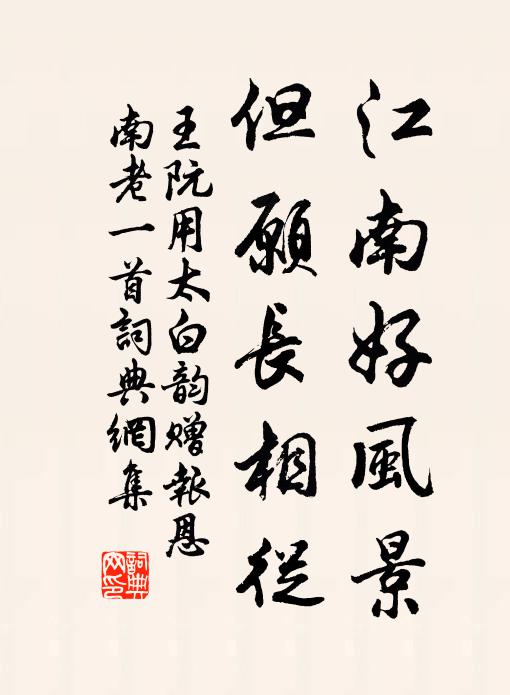 江南好風景
但願長相從
王阮用太白韵赠報恩
南老一首詞典網集
詞典网印